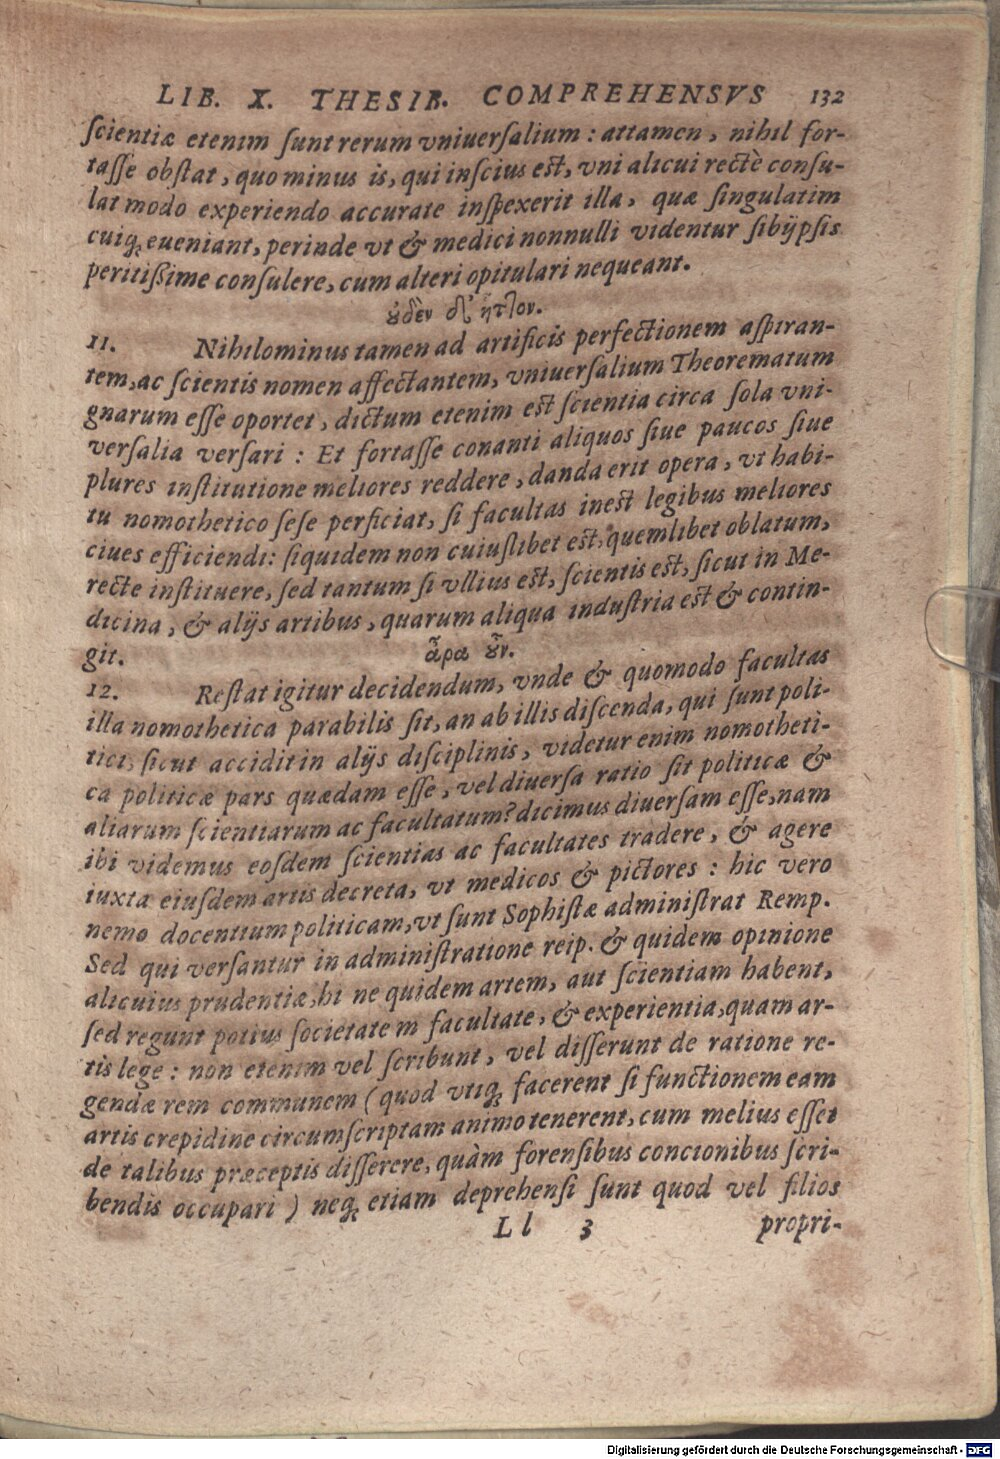 LIB. X. THESIB. COMPREHENSVS 132
ſcientiæ etenim ſunt rerum vniuerſalium : attamen, nihil for-
taſſe obſtat, quo minus is, qui inſcius eſt, vni alicui rectè conſu-
lat modo experiendo accurate inſpexerit illa, quæ ſingulatim
cuiq; eueniant, perinde vt & medici nonnulli videntur ſibijpſis
peritißime conſulere, cum alteri opitulari nequeant.
ȣ̓δὲν δ' ἧττον.
11. Nihilominus tamen ad artificis perfectionem aſpiran-
tem, ac ſcientis nomen affectantem, vniuerſalium Theorematum
gnarum eſſe oportet, dictum etenim eſt ſcientia circa ſola vni-
verſalia verſari : Et fortaſſe conanti aliquos ſiue paucos ſiue
plures inſtitutione meliores reddere, danda erit opera, vt habi-
tu nomothetico ſeſe perficiat, ſi facultas ineſt legibus meliores
ciues efficiendi: ſiquidem non cuiuſlibet eſt, quemlibet oblatum,
recte inſtituere, ſed tantum ſi vllius eſt, ſcientis eſt, ſicut in Me-
dicina, & alijs artibus, quarum aliqua induſtria eſt & contin-
git.
ἆρα ȣ̓͂ν.
12. Reſtat igitur decidendum, vnde & quomodo facultas
illa nomothetica parabilis ſit, an ab illis diſcenda, qui ſunt poli-
tici, ſicut accidit in alijs diſciplinis, videtur enim nomotheti-
ca politicæ pars quædam eſſe, vel diuerſa ratio ſit politicæ &
aliarum ſcientiarum ac facultatum? dicimus diuerſam eſſe, nam
ibi videmus eoſdem ſcientias ac facultates tradere, & agere
iuxta eiuſdem artis decreta, vt medicos & pictores : hic vero
nemo docentium politicam, vt ſunt Sophiſtæ adminiſtrat Remp.
Sed qui verſantur in adminiſtratione reip. & quidem opinione
alicuius prudentiæ, hi ne quidem artem, aut ſcientiam habent,
ſed regunt potius ſocietatem facultate, & experientia, quam ar-
tis lege : non etenim vel ſcribunt, vel diſſerunt de ratione re-
gendæ rem communem ( quod vtiq; facerent ſi functionem eam
artis crepidine circumſcriptam animo tenerent, cum melius eſſet
de talibus præceptis diſſerere, quàm forenſibus concionibus ſcri-
bendis occupari ) neq; etiam deprehenſi ſunt quod vel filios
L l 3 propri-
Digitalisierung gefördert durch die Deutsche Forschungsgemeinschaft - DFG